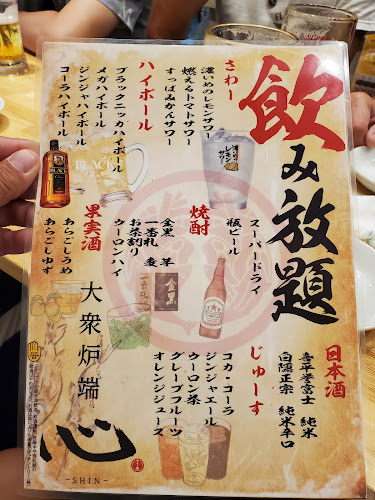 飲み放題
さわー
濃いめのレモンサワー
燃えるトマトサワー
すっぱみかんサワー
ハイボール
ブラックニッカハイボール
メガハイボール
ジンジャーハイボール
コーラハイボール
BLACK
スーパードライ
瓶ビール
焼酎
金黒 芋
一番札 麦
お茶割り
ウーロンハイ
果実酒
あらごしうめ
あらごしゆず
日本酒
喜平誉富士 純米
白隠正宗 純米辛口
じゅーす
コカ・コーラ
ジンジャエール
ウーロン茶
グレープフルーツ
オレンジジュース
大衆炉端
心
-SHIN-